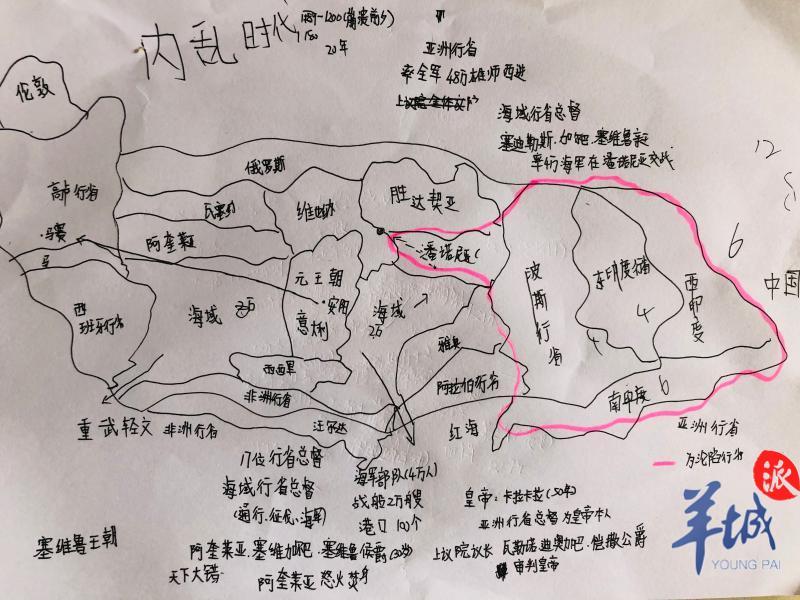 内乱时代
20年
亚洲行省
率全军48万雄师西进
海域行省总督
塞迪勒斯·加吧·塞维鲁
率领海军在潘诺尼亚交战
伦敦
俄罗斯
高卢行省
·马赛
维也纳
胜达契亚
阿奎莱亚
潘诺尼亚
元王朝
·安阳
意州
海域
海域
2万
西班牙行省
西西里
雅典
阿拉伯行省
波斯行省
东印度
4
西印度
6
12
中国
南印度 6
非洲行省
非洲行省
重武轻文
红海
亚洲行省
为沦陷行省
17位行省总督
海域行省总督
海军部队(4万人)
战船2万艘
港口100个
皇帝:卡拉卡拉(50年)
亚洲行省总督为皇帝本人
上议院议长 瓦勒诺迪奥加吧·恺撒公爵
审判皇帝
塞维鲁王朝
阿奎莱亚·塞维加吧·塞维鲁侯爵
天下大错
阿奎莱亚 怒火焚身
派
羊城
YOUNG PAI